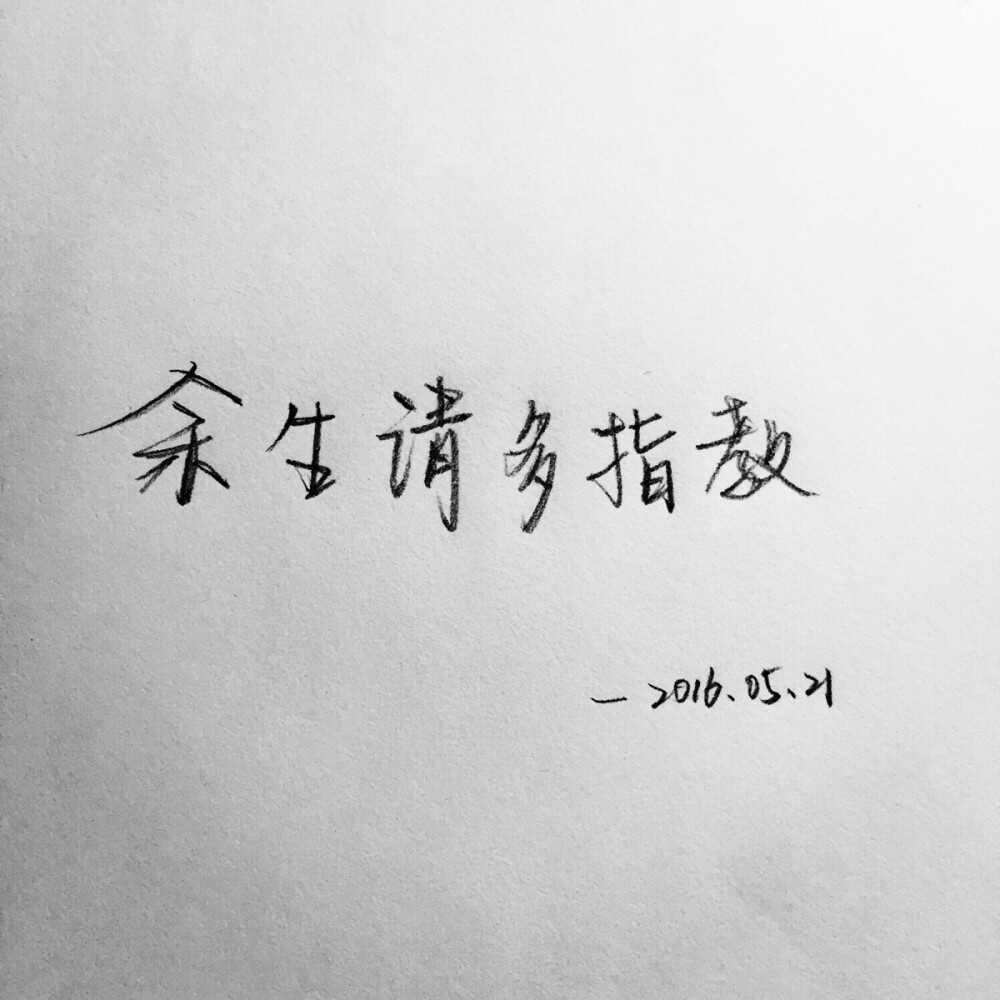 余生请多指教
—2016.05.21